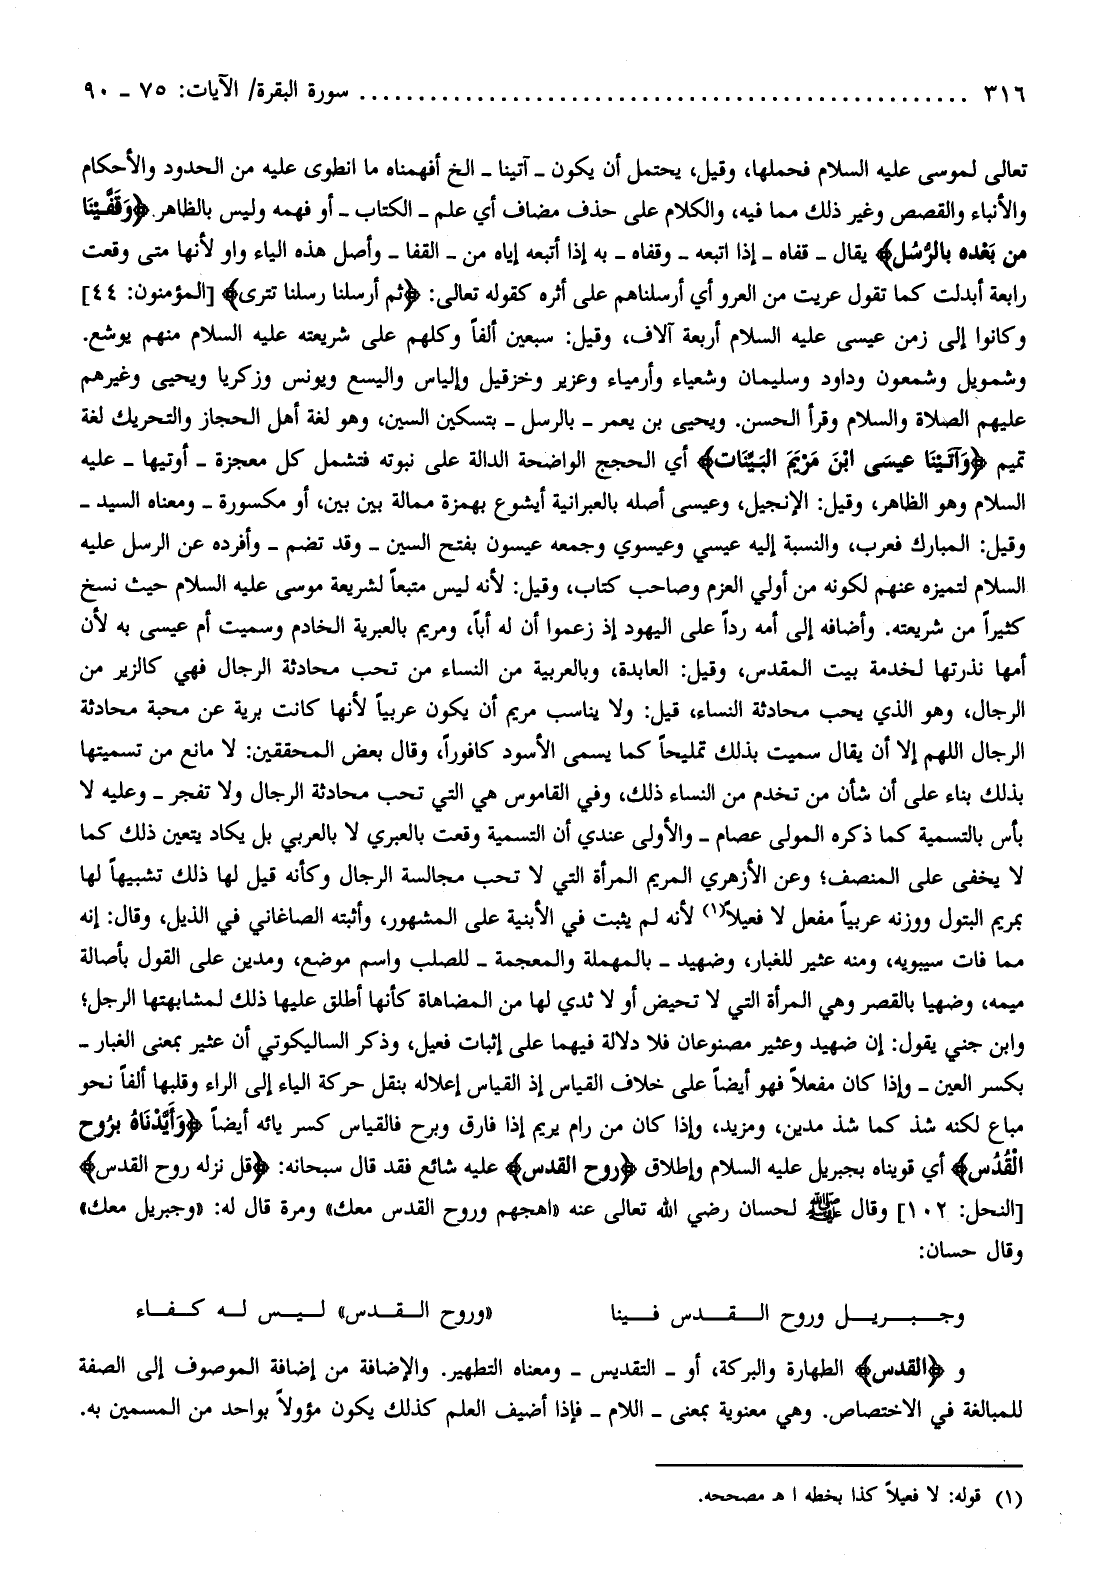 ٣١٦ ................................................ سورة البقرة/ الآيات: ٧٥ ـ ٩٠
تعالى لموسى عليه السلام فحملها، وقيل، يحتمل أن يكون ـ آتينا ـ الخ أفهمناه ما انطوى عليه من الحدود والأحكام
والأنباء والقصص وغير ذلك مما فيه، والكلام على حذف مضاف أي علم ـ الكتاب ـ أو فهمه وليس بالظاهر. ﴿وَقَفَّيْنَا
من بَعْده بالرُّسُل﴾ يقال ـ قفاه ـ إذا اتبعه ـ وقفاه ـ به إذا أتبعه إياه من ـ القفا ـ وأصل هذه الياء واو لأنها متى وقعت
رابعة أبدلت كما تقول عريت من العرو أي أرسلناهم على أثره كقوله تعالى: ﴿ثم أرسلنا رسلنا تترى﴾ [المؤمنون: ٤٤]
وكانوا إلى زمن عيسى عليه السلام أربعة آلاف، وقيل: سبعين ألفاً وكلهم على شريعته عليه السلام منهم يوشع.
وشمويل وشمعون وداود وسليمان وشعياء وأرمياء وعزير وخزقيل وإلياس واليسع ويونس وزكريا ويحيى وغيرهم
عليهم الصلاة والسلام وقرأ الحسن. ويحيى بن يعمر ـ بالرسل ـ بتسكين السين، وهو لغة أهل الحجاز والتحريك لغة
تميم ﴿وَآتَيْنَا عيسَى ابْنَ مَرْيَمَ البَيِّنَات﴾ أي الحجج الواضحة الدالة على نبوته فتشمل كل معجزة ـ أوتيها ـ عليه
السلام وهو الظاهر، وقيل: الإنجيل، وعيسى أصله بالعبرانية أيشوع بهمزة ممالة بين بين، أو مكسورة ـ ومعناه السيد ـ
وقيل: المبارك فعرب، والنسبة إليه عيسي وعيسوي وجمعه عيسون بفتح السين ـ وقد تضم ـ وأفرده عن الرسل عليه
السلام لتميزه عنهم لكونه من أولي العزم وصاحب كتاب، وقيل: لأنه ليس متبعاً لشريعة موسى عليه السلام حيث نسخ
كثيراً من شريعته. وأضافه إلى أمه رداً على اليهود إذ زعموا أن له أباً، ومريم بالعبرية الخادم وسميت أم عيسى به لأن
أمها نذرتها لخدمة بيت المقدس، وقيل: العابدة، وبالعربية من النساء من تحب محادثة الرجال فهي كالزير من
الرجال، وهو الذي يحب محادثة النساء، قيل: ولا يناسب مريم أن يكون عربياً لأنها كانت برية عن محبة محادثة
الرجال اللهم إلا أن يقال سميت بذلك تمليحاً كما يسمى الأسود كافوراً، وقال بعض المحققين: لا مانع من تسميتها
بذلك بناء على أن شأن من تخدم من النساء ذلك، وفي القاموس هي التي تحب محادثة الرجال ولا تفجر ـ وعليه لا
بأس بالتسمية كما ذكره المولى عصام ـ والأولى عندي أن التسمية وقعت بالعبري لا بالعربي بل يكاد يتعين ذلك كما
لا يخفى على المنصف؛ وعن الأزهري المريم المرأة التي لا تحب مجالسة الرجال وكأنه قيل لها ذلك تشبيهاً لها
بمريم البتول ووزنه عربياً مفعل لا فعيلاً(١) لأنه لم يثبت في الأبنية على المشهور، وأثبته الصاغاني في الذيل، وقال: إنه
مما فات سيبويه، ومنه عثير للغبار، وضهيد ـ بالمهملة والمعجمة ـ للصلب واسم موضع، ومدين على القول بأصالة
ميمه، وضهيا بالقصر وهي المرأة التي لا تحيض أو لا ثدي لها من المضاهاة كأنها أطلق عليها ذلك لمشابهتها الرجل؛
وابن جني يقول: إن ضهيد وعثير مصنوعان فلا دلالة فيهما على إثبات فعيل، وذكر الساليكوتي أن عثير بمعنى الغبار ـ
بكسر العين ـ وإذا كان مفعلاً فهو أيضاً على خلاف القياس إذ القياس إعلاله بنقل حركة الياء إلى الراء وقلبها ألفاً نحو
مباع لكنه شذ كما شذ مدين، ومزيد، وإذا كان من رام يريم إذا فارق وبرح فالقياس كسر يائه أيضاً ﴿وَأَيَّدْنَاهُ برُوح
الْقُدُس﴾ أي قويناه بجبريل عليه السلام وإطلاق ﴿روح القدس﴾ عليه شائع فقد قال سبحانه: ﴿قل نزله روح القدس﴾
[النحل: ١٠٢] وقال ﷺ لحسان رضي الله تعالى عنه «اهجهم وروح القدس معك» ومرة قال له: «وجبريل معك»
وقال حسان:
وجـبـريـل وروح الـقـدس فـيـنا «وروح الـقـدس» لـيـس لـه كـفـاء
و ﴿القدس﴾ الطهارة والبركة، أو ـ التقديس ـ ومعناه التطهير. والإضافة من إضافة الموصوف إلى الصفة
للمبالغة في الاختصاص. وهي معنوية بمعنى ـ اللام ـ فإذا أضيف العلم كذلك يكون مؤولاً بواحد من المسمين به.
(١) قوله: لا فعيلاً كذا بخطه ا هـ مصححه.